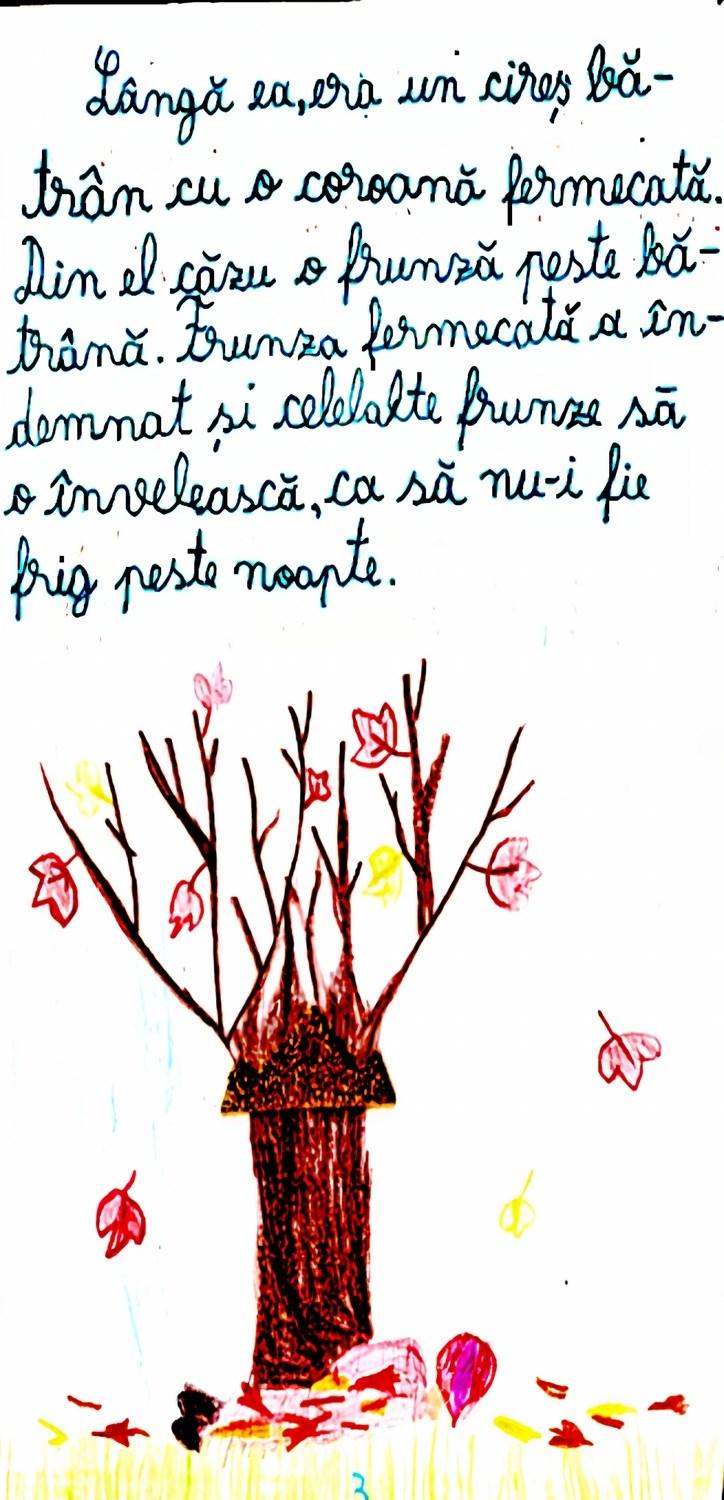 Lângă ea, era un cireș bă-
trân cu o coroană fermecată.
Din el căzu o frunză peste bă-
trână. Frunza fermecată a în-
demnat și celelalte frunze să
o învelească, ca să nu-i fie
frig peste noapte.
3